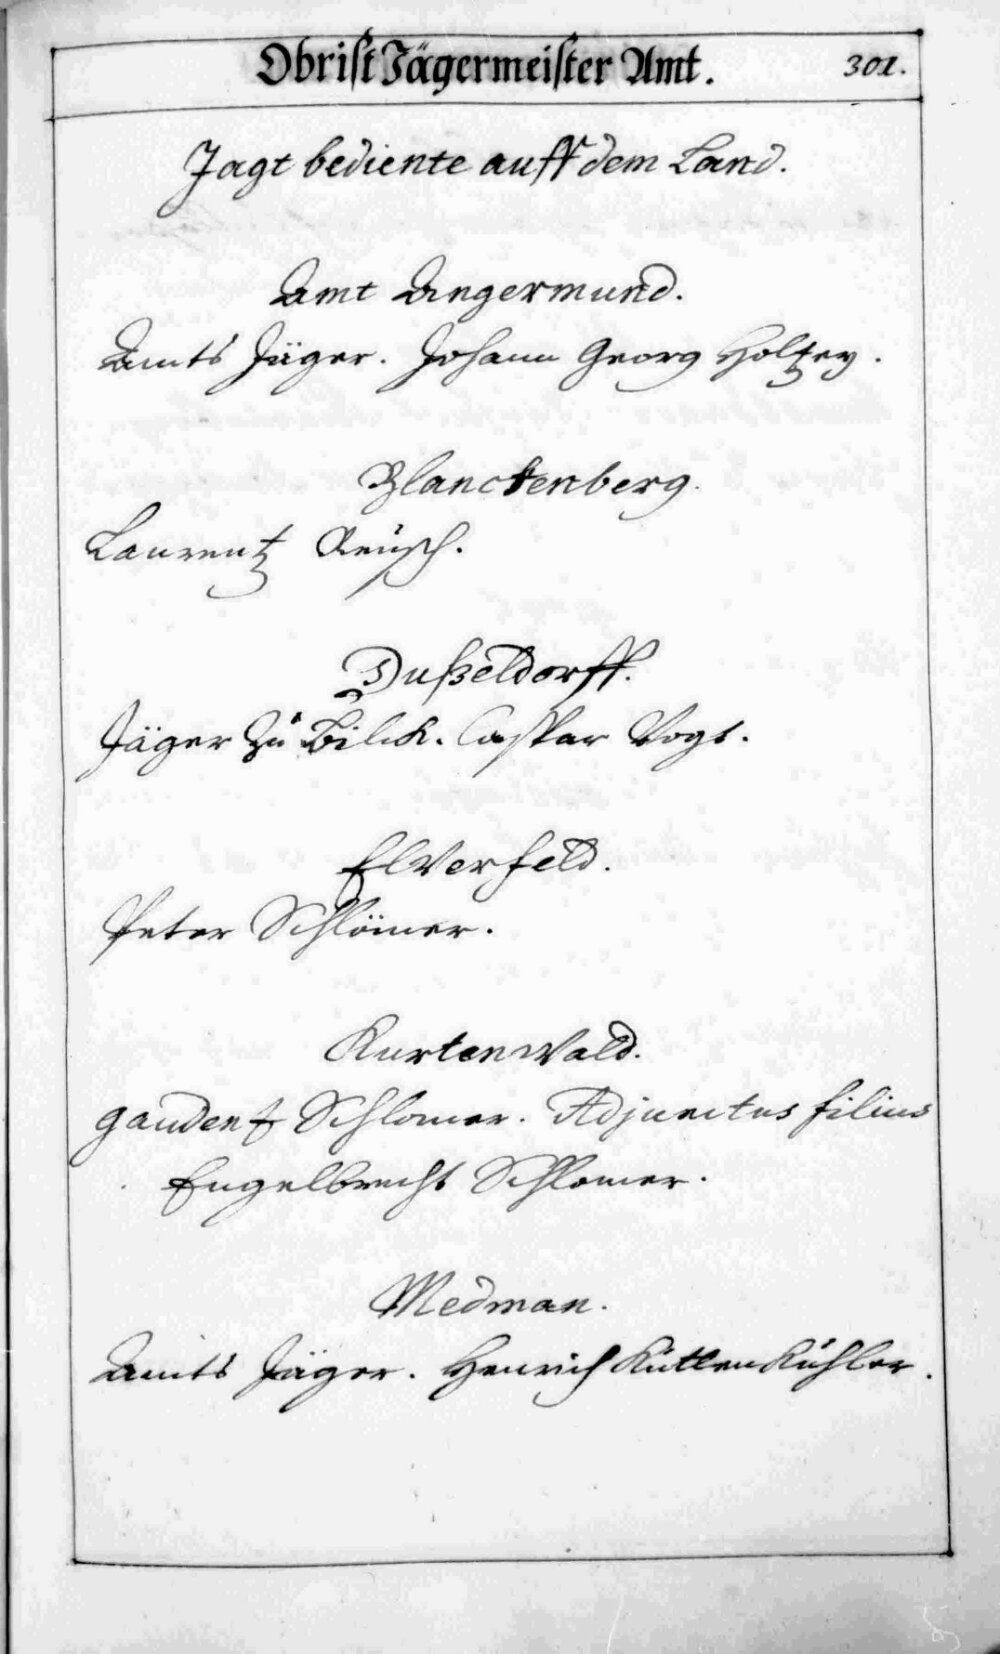 Obrist Jägermeister Amt.
301.
Jagt bediente auff dem Land.
Amt Angermund.
Amts Jäger. Johann Georg Holtzey.
Blanckenberg.
Laurentz Reusch.
Dußeldorff.
Jäger zu Bilck. Caspar Vogt.
Elverfeld.
Peter Schlömer.
Kurtenwald.
Gaudentz Schlomer. Adjunctus filius
Engelbrecht Schlomer.
Medman.
Amts Jäger. Henrich Kuttenkühler.